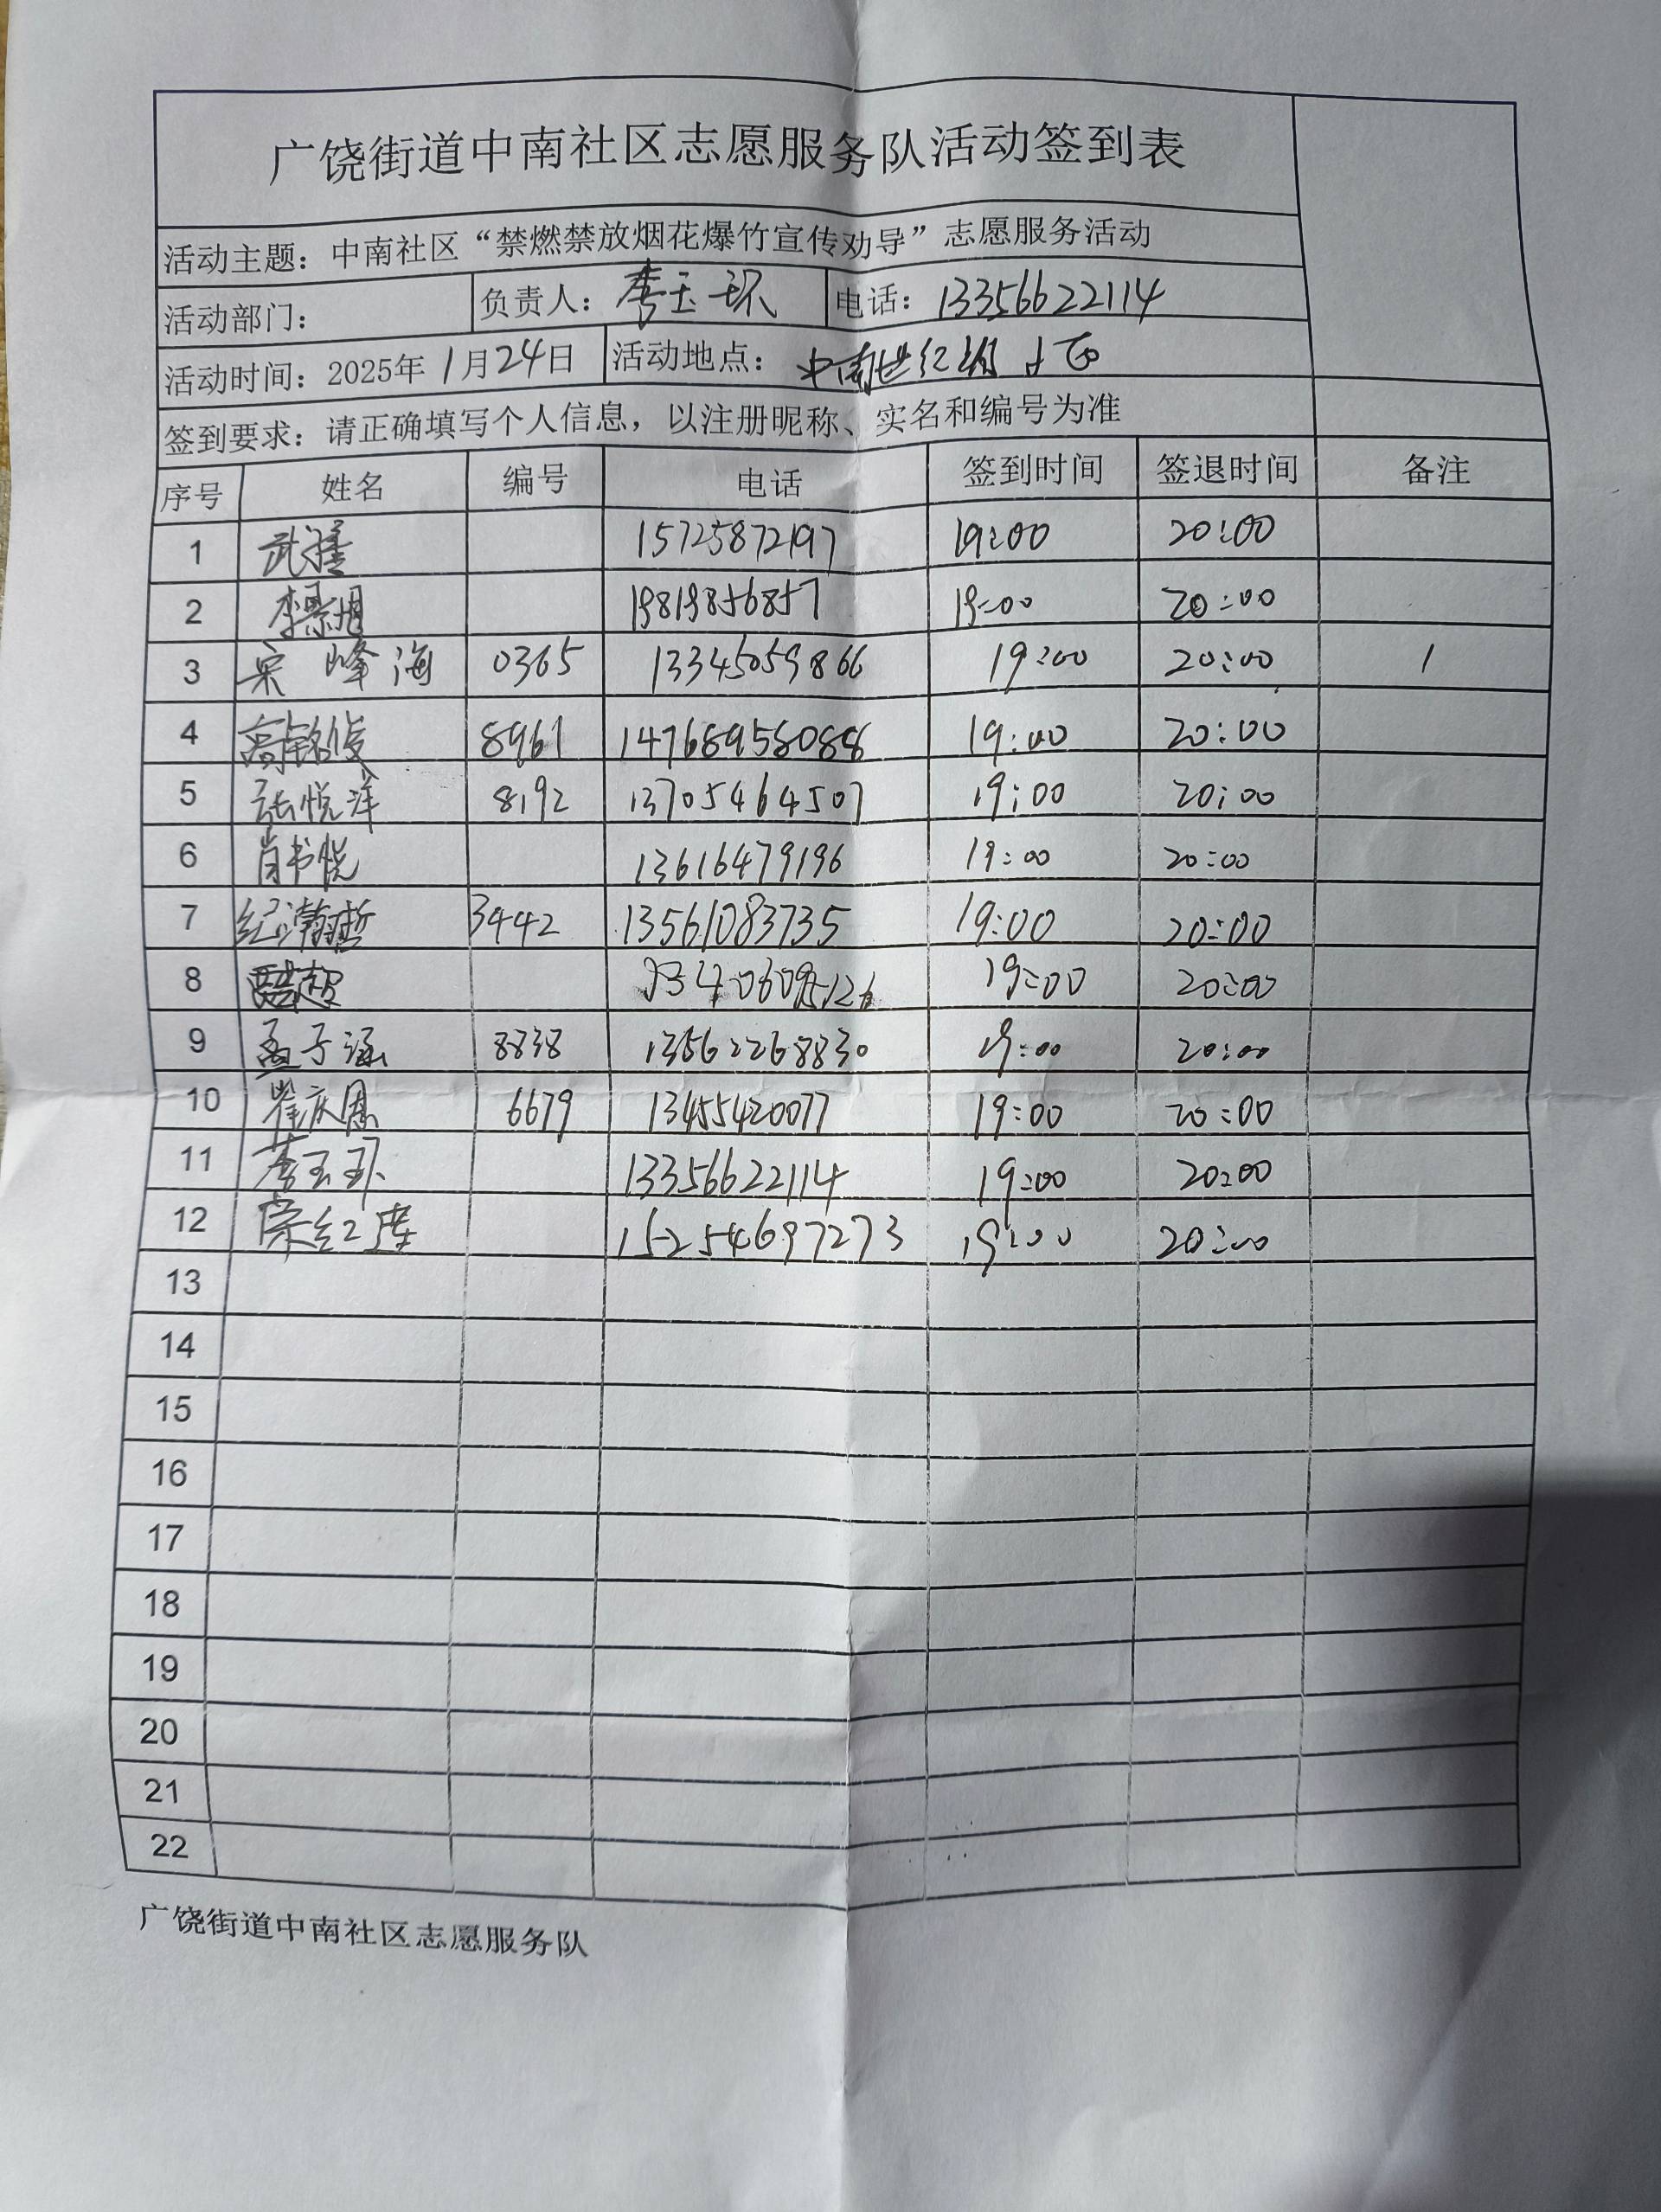 广饶街道中南社区志愿服务队活动签到表
活动主题：中南社区“禁燃禁放烟花爆竹宣传劝导”志愿服务活动
活动部门： 负责人：李玉环 电话：13356622114
活动时间：2025年1月24日 活动地点：中南世纪城
签到要求：请正确填写个人信息，以注册昵称、实名和编号为准
序号 姓名 编号 电话 签到时间 签退时间 备注
1 武 15725872197 19:00 20:00
2 李景明 19819856857 19:00 20:00
3 宋峰海 0365 13345059866 19:00 20:00 /
4 高铭俊 8961 19:00 20:00
5 张悦洋 8192 13705464507 19:00 20:00
6 肖书悦 13616479196 19:00 20:00
7 纪瀚哲 3442 13561083735 19:00 20:00
8 19:00 20:00
9 孟子涵 8838 13562268830 19:00 20:00
10 崔庆恩 6679 13455420077 19:00 20:00
11 李玉环 13356622114 19:00 20:00
12 15254697273 19:00 20:00
13
14
15
16
17
18
19
20
21
22
广饶街道中南社区志愿服务队